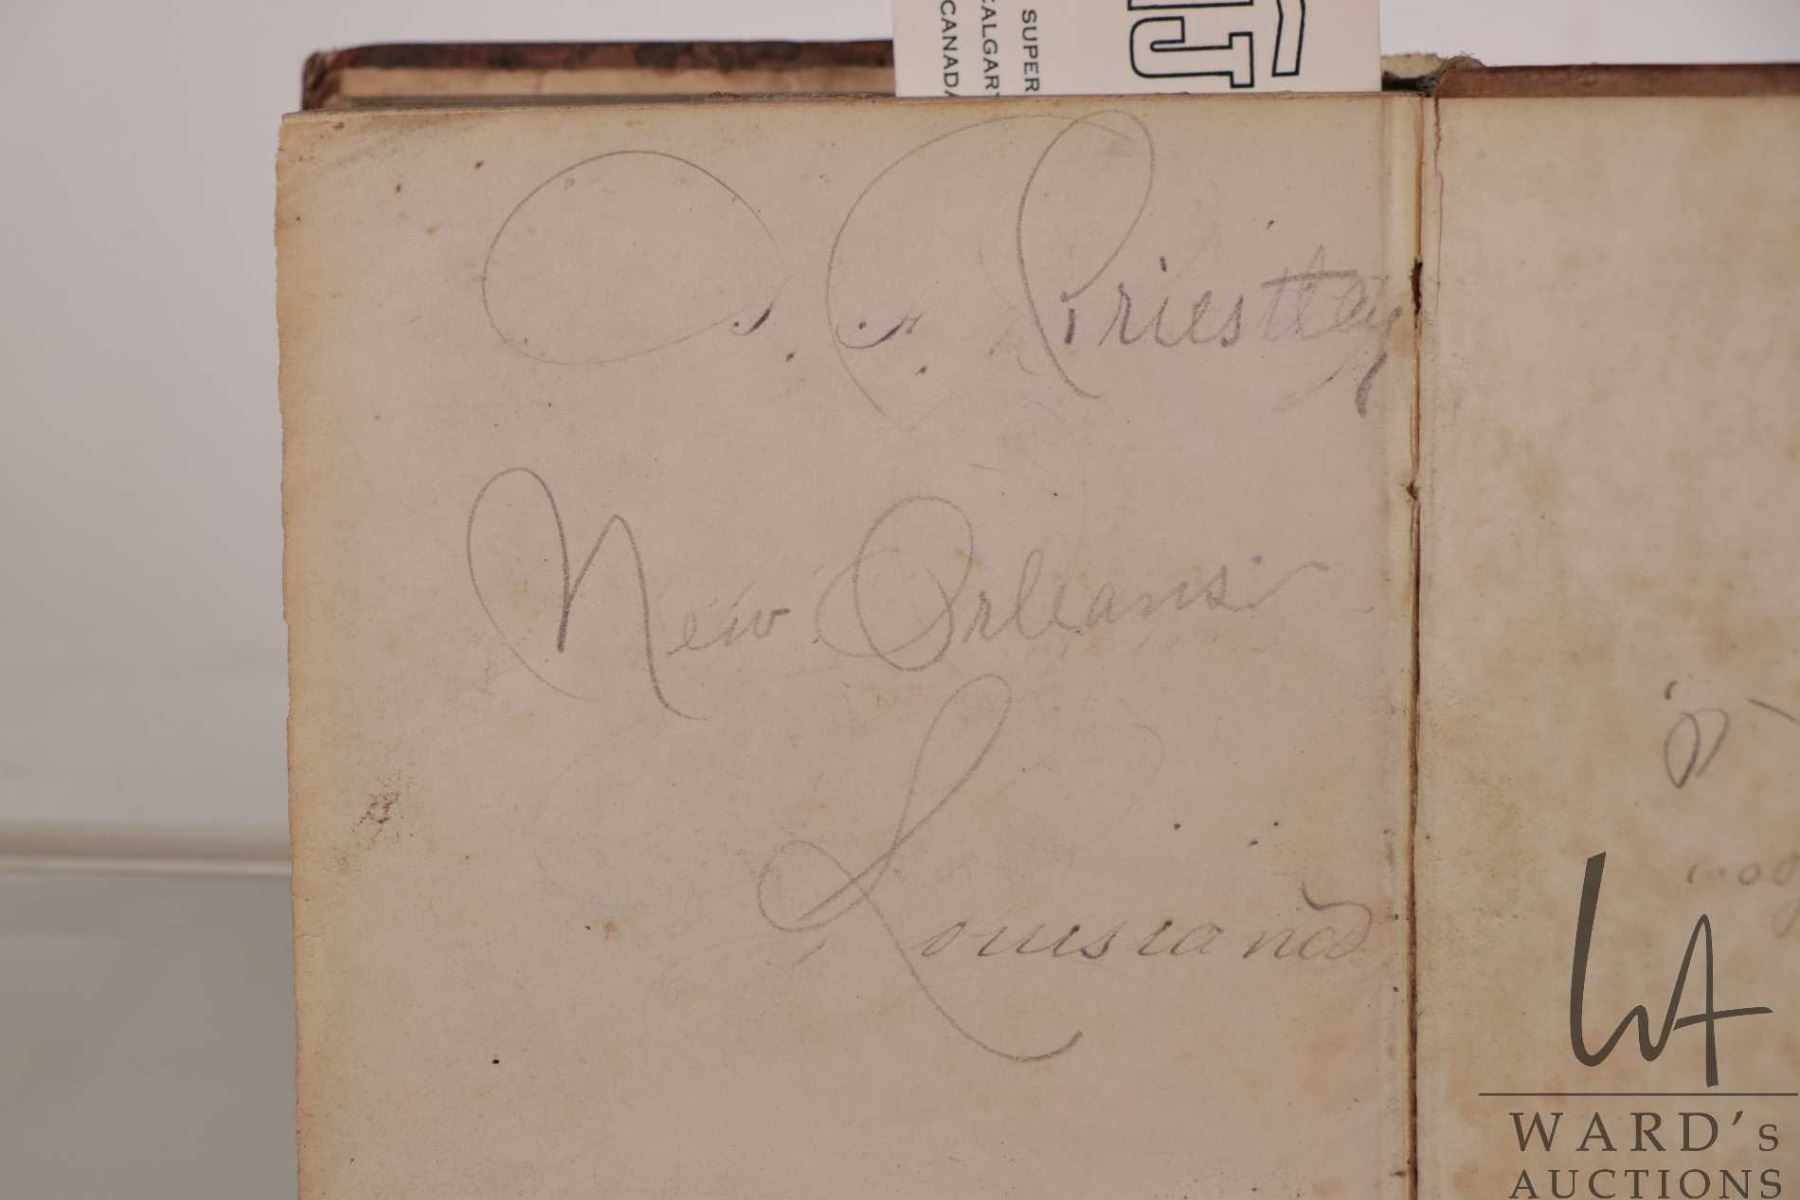 SUPER
CALGARY
CANADA
Priestley
New Orleans
Louisiana
WA
WARD's
AUCTIONS